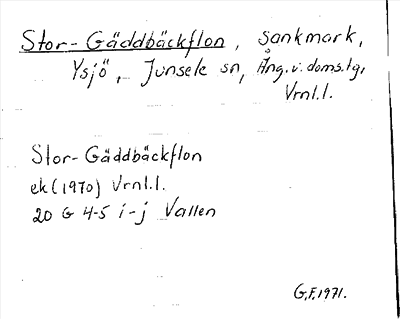 Stor-Gäddbäckflon, sankmark,
Ysjö, Junsele sn, Ång.v.doms.lg,
Vrnl.l.
Stor-Gäddbäckflon
ek (1970) Vrnl.l.
20 G 4-5 i-j Vallen
G.F. 1971.